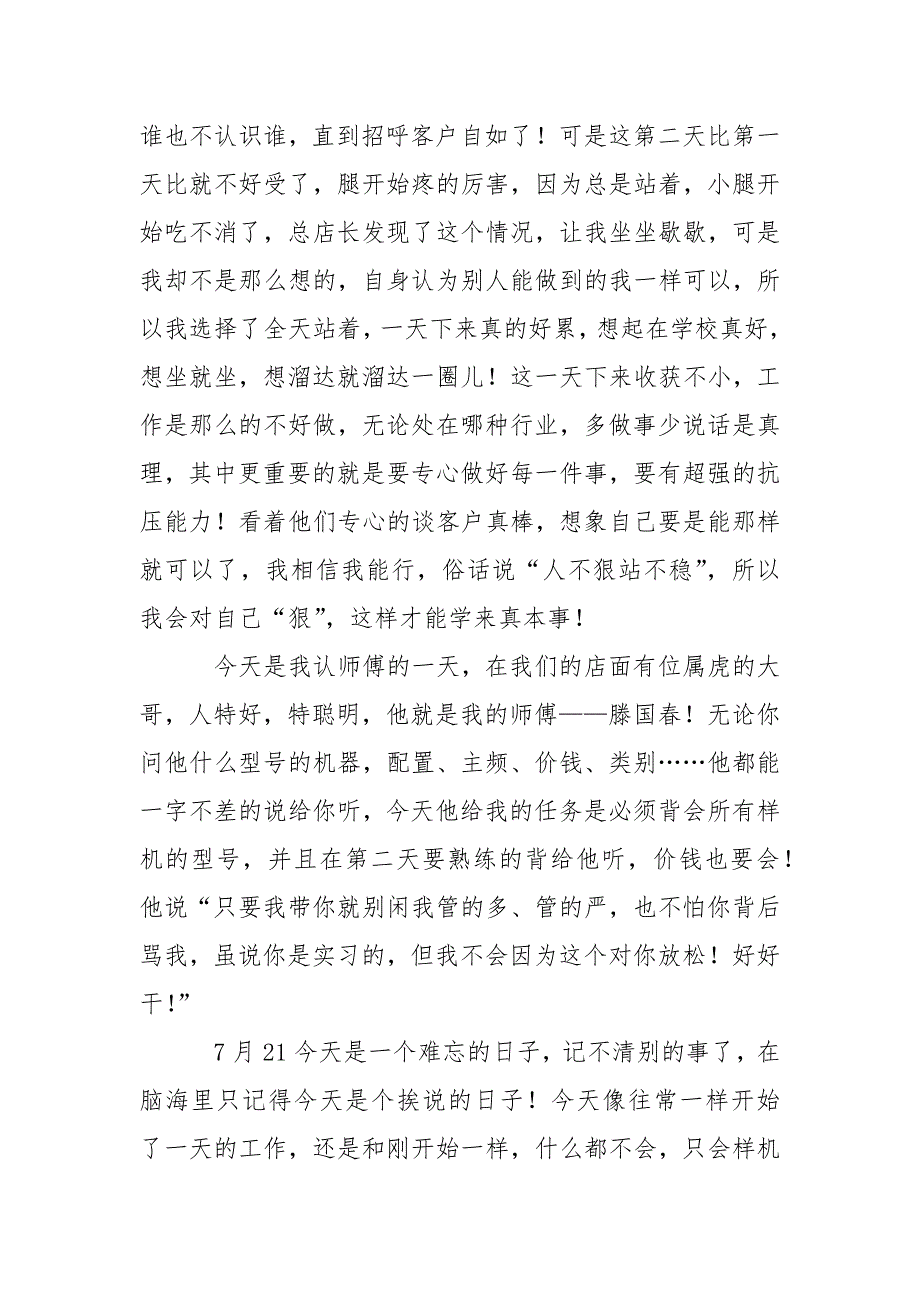 谁也不认识谁，直到招呼客户自如了！可是这第二天比第一
天比就不好受了，腿开始疼的厉害，因为总是站着，小腿开
始吃不消了，总店长发现了这个情况，让我坐坐歇歇，可是
我却不是那么想的，自身认为别人能做到的我一样可以，所
以我选择了全天站着，一天下来真的好累，想起在学校真好，
想坐就坐，想溜达就溜达一圈儿！这一天下来收获不小，工
作是那么的不好做，无论处在哪种行业，多做事少说话是真
理，其中更重要的就是要专心做好每一件事，要有超强的抗
压能力！看着他们专心的谈客户真棒，想象自己要是能那样
就可以了，我相信我能行，俗话说“人不狠站不稳”，所以
我会对自己“狠”，这样才能学来真本事！
今天是我认师傅的一天，在我们的店面有位属虎的大
哥，人特好，特聪明，他就是我的师傅——滕国春！无论你
问他什么型号的机器，配置、主频、价钱、类别……他都能
一字不差的说给你听，今天他给我的任务是必须背会所有样
机的型号，并且在第二天要熟练的背给他听，价钱也要会！
他说“只要我带你就别闲我管的多、管的严，也不怕你背后
骂我，虽说你是实习的，但我不会因为这个对你放松！好好
干！”
7 月 21 今天是一个难忘的日子，记不清别的事了，在
脑海里只记得今天是个挨说的日子！今天像往常一样开始
了一天的工作，还是和刚开始一样，什么都不会，只会样机